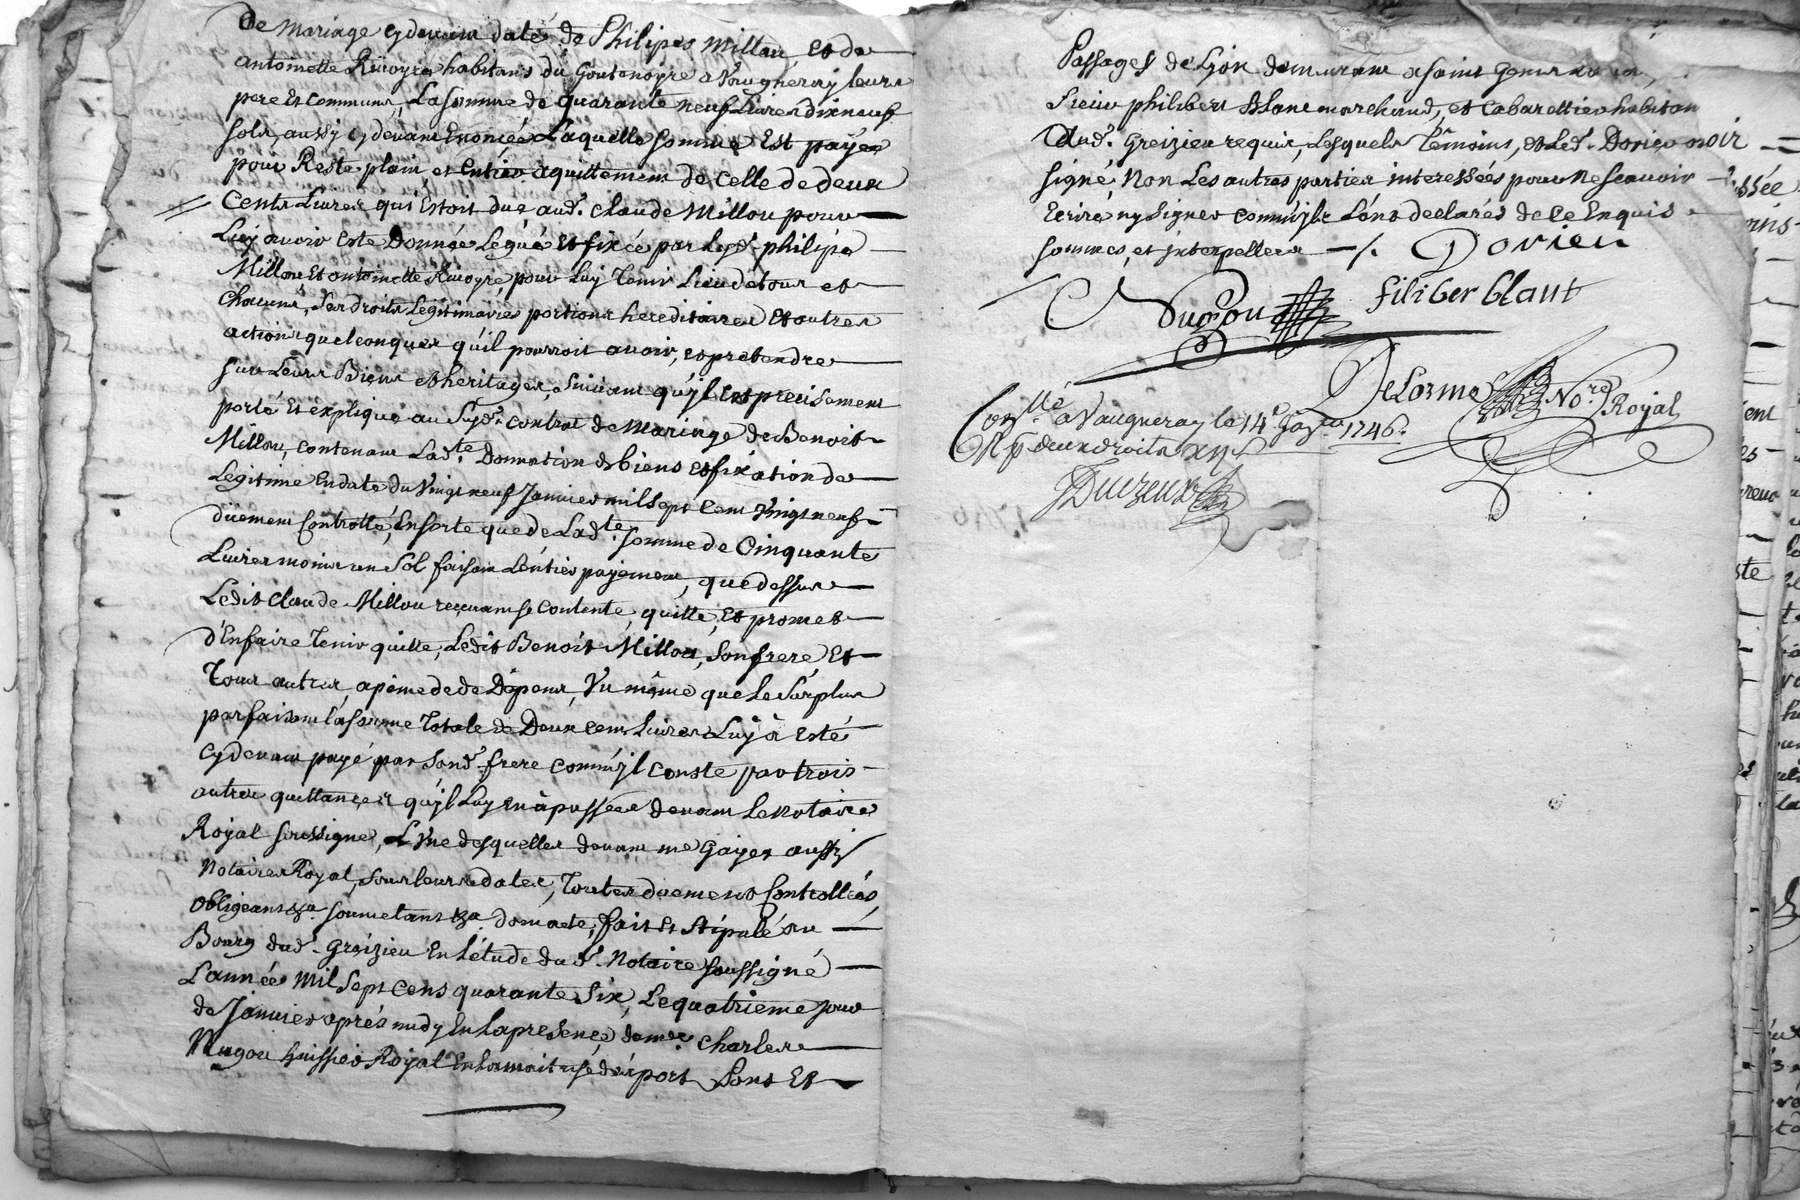 de mariage cydevant daté de Philipes Millou et de
antoinette Rivoyre habitans du Goutenoyre a Vaugneray leurs
pere et commune, La somme de quarante neuf Livres dixneuf
sols, aussy cydevant Enoncée Laquelle somme Est payée
pour Reste plain et Entier aquittement de celle de deux
Cents Livres qui Estoit due aud. claude Millou pour
Luy avoir esté Donnée Leguée et fixée par Lesd. philipe
Millou Et antoinette Rivoyre pour Luy Tenir Lieu de tous et
chacuns, Ses droits Legitimaires portions hereditaires Et autres
actions quelconques qu'il pourroit avoir, et pretendre
sur Leurs Biens et heritages, suivant qu'il est precisement
porté Et expliqué au susd. contrat de Mariage de Benoit
Millou, contenant Lad.te Donnation de biens et fixation de
Legitime En date du Vingt neuf Janvier mil sept cent Vingt neuf
düement Controllé, En sorte que de Lad.te somme de Cinquante
Livres moins un Sol faisant L'entier payement, que dessus
Ledit Claude Millou reçevant se contente, quitte, et promet
d'En faire Tenir quitte, Ledit Benoit Millou, son frere, Et
Tous autres, a peine de de Dépens, Vu même que Le Surplus
parfaisant la somme Totale de Deux cent Livres Luy a Esté
cydevant payé par Sond. frere comm'jl conste par trois
autres quittances qu'jl Luy en à passées devant Le Notaire
Royal soussigné, L'Vne desquelles devant me Gayet aussy
Notaire Royal, sous leurs dates, Toutes düement Controllées,
obligeant &a. soumetans &a. dont acte, fait Et Stipulé au
Bourg dud. Greizieu En L'étude dud. Notaire soussigné
L'année Mil Sept Cens quarante Six, Le quatrieme jour
de Janvier aprés midy En La presence de me. Charles
Nugou huissier Royal En La maitrise des ports Ponts Et
Passages de Lÿon demeurant a saint Genis
Sieur philibert Blanc marchand, et Cabarettier habitan
dud. Greizieu requis, Lesquels Témoins, et Led. Dorieu ont
signé, Non Les autres parties interessées pour ne scavoir
Ecrire ny Signer comm'jls L'ont declarés de Ce Enquis
sommés, et jnterpellés —/. Dorieu
Nugou filiber blanc
DeLorme No.re Royal
Con.llé a Vaugneray le 14e Janvr 1746.
R p deux droits xiis
Duizeux